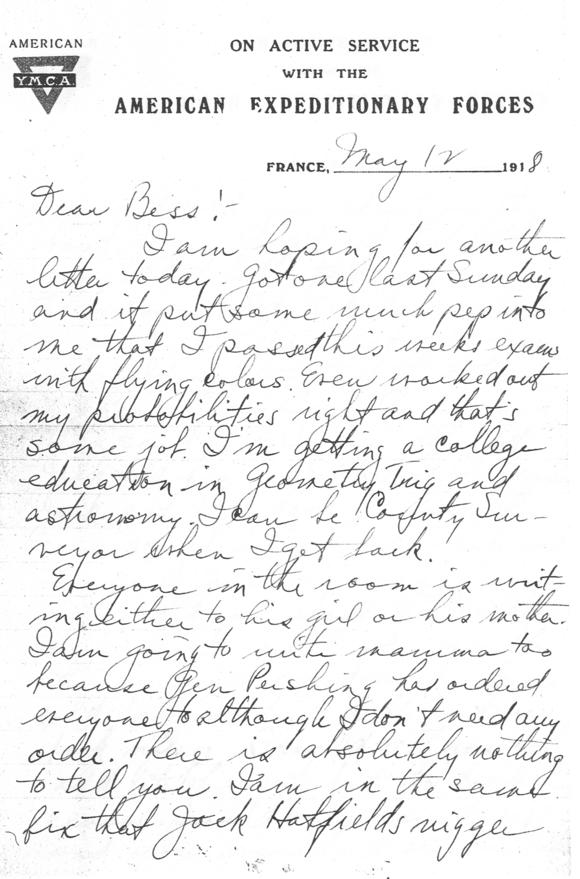 AMERICAN
Y.M.C.A.
ON ACTIVE SERVICE
WITH THE
AMERICAN EXPEDITIONARY FORCES
FRANCE, May 12 1918
Dear Bess!-
I am hoping for another
letter today. Got one last Sunday
and it put some much pep into
me that I passed this weeks exams
with flying colors. Even worked out
my probabilities right and that's
some job. I'm getting a college
education in Geometry Trig and
astronomy. I can be County Sur-
veyor when I get back.
Everyone in the room is writ-
ing either to his girl or his mother.
I am going to write mamma too
because Gen Pershing has ordered
everyone to although I don't need any
order. There is absolutely nothing
to tell you. I am in the same
fix that Jack Hatfields nigger